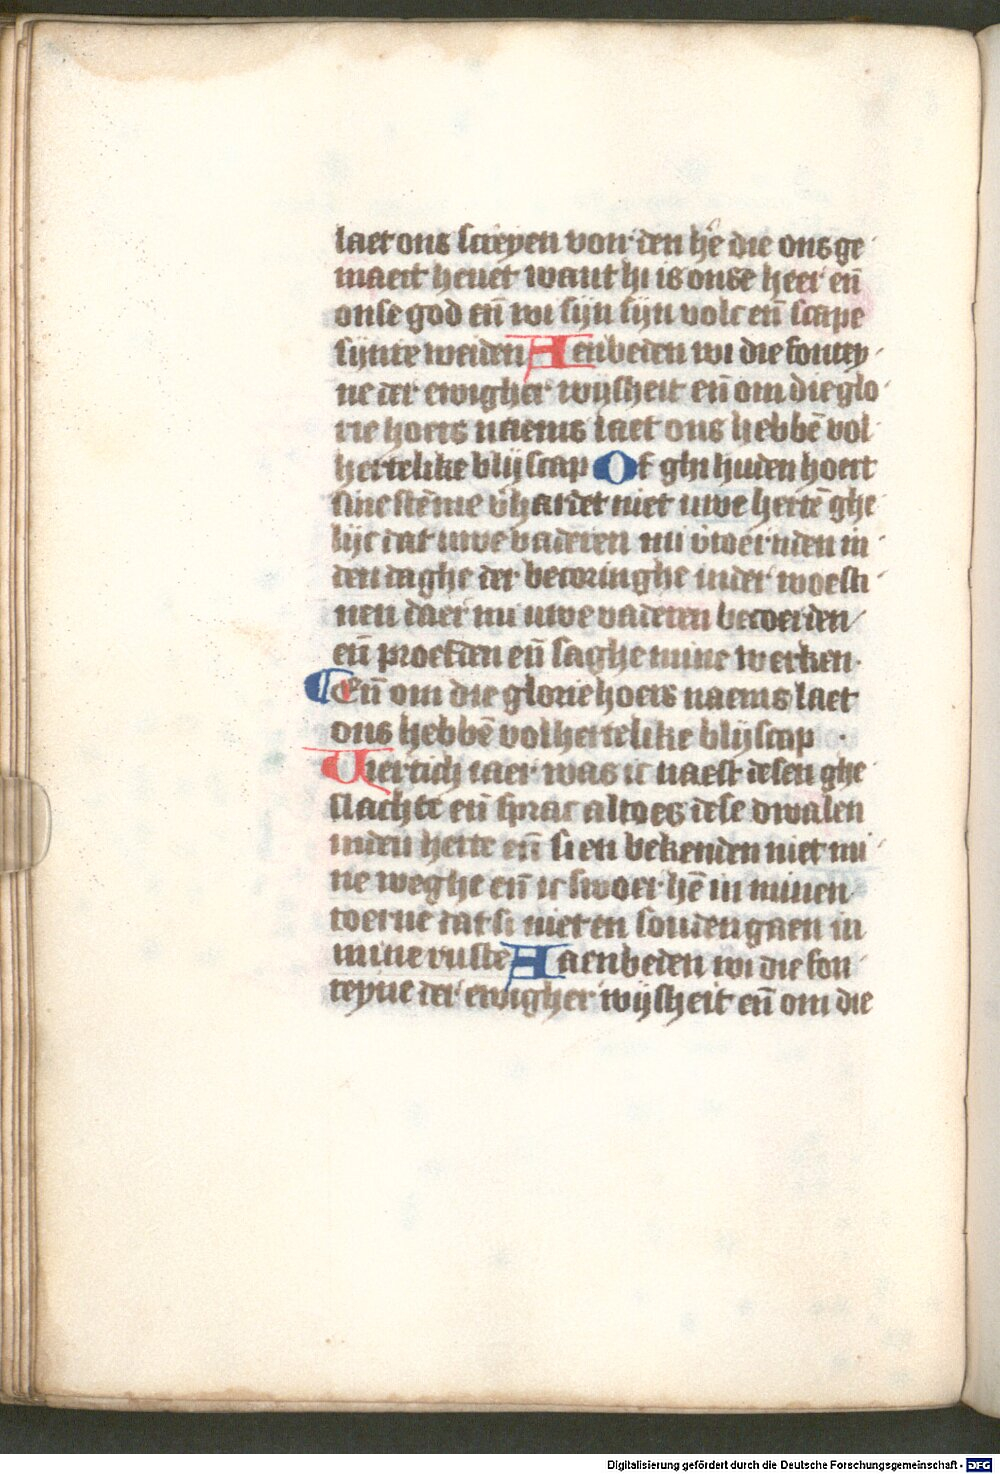 laet ons screyen voir den hē die ons ge
maect heuet want hi is onse heer en̄
onse god en̄ wi sijn sijn volc en̄ scape
sijnre weiden Aenbeden wi die fontey
ne der ewigher wijsheit en̄ om die glo
rie hoers naems laet ons hebbē vol
hertelike blijscap Of ghi huden hoert
sine stēme v̄hardet niet uwe hertē ghe
lijc dat uwe vaderen mi v̄toernden in
den daghe der becoringhe inder woesti
nen daer mi uwe vaderen becoerden
en̄ proefden en̄ saghe mine werken
En̄ om die glorie hoers naems laet
ons hebbē volhertelike blijscap
Viertich iaer was ic naest desen ghe
slachte en̄ sprac altoes dese dwalen
inden herte en̄ si en bekenden niet mi
ne weghe en̄ ic swoer hē in minen
toerne dat si niet en souden gaen in
mine ruste Aaenbeden wi die fon
teyne der ewigher wijsheit en̄ om die
Digitalisierung gefördert durch die Deutsche Forschungsgemeinschaft - DFG